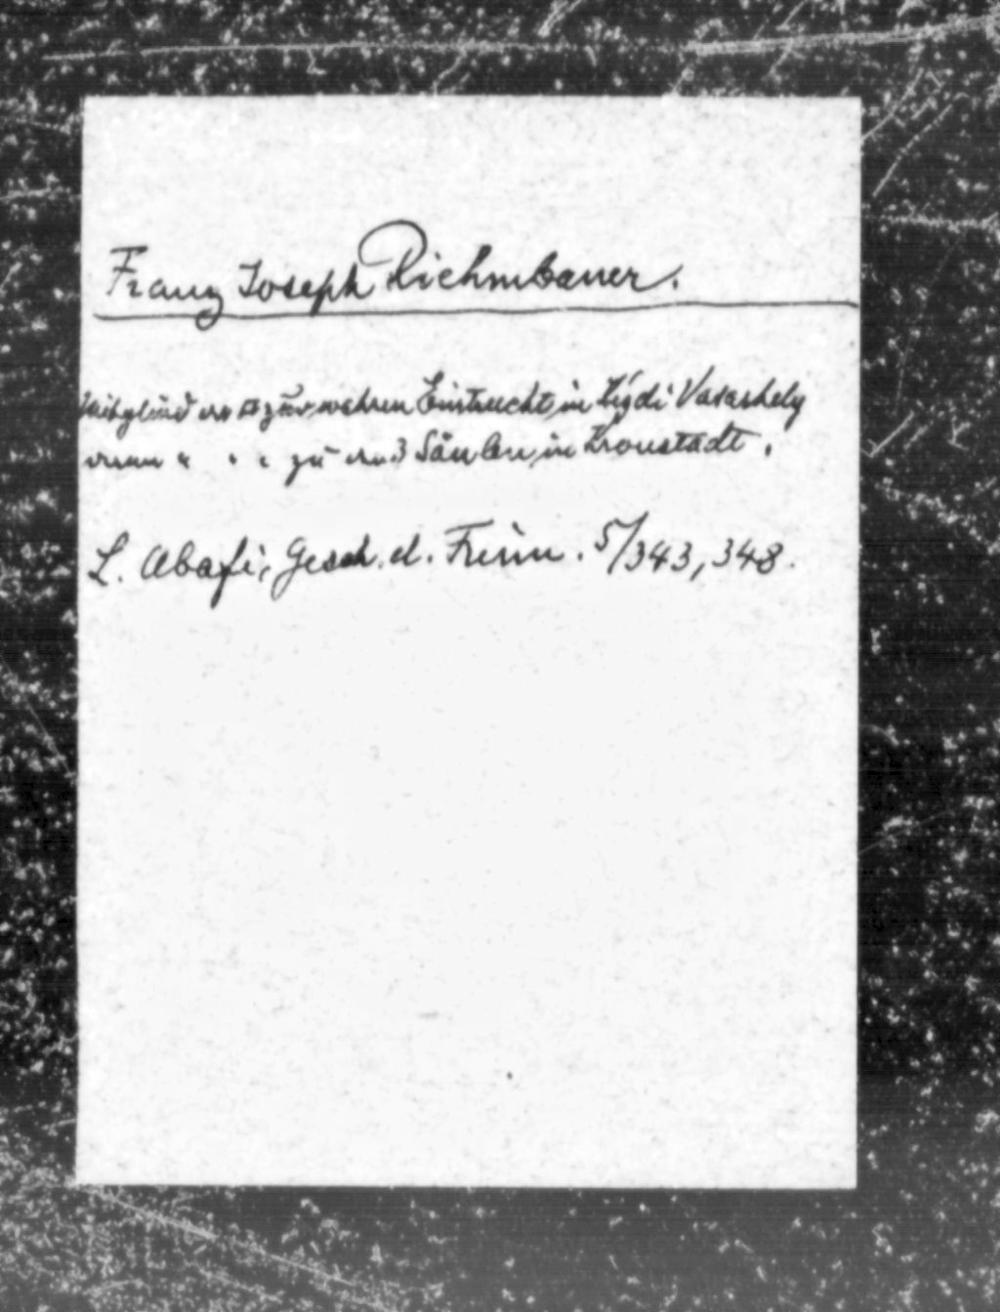 Franz Joseph Richmbauer.
Mitglied der □ zur wahren Eintracht in Vasarhely
dann " " " zu den 3 Säulen in Kronstadt.
L. Abafi, Gesch. d. Freim. 5/343, 348.